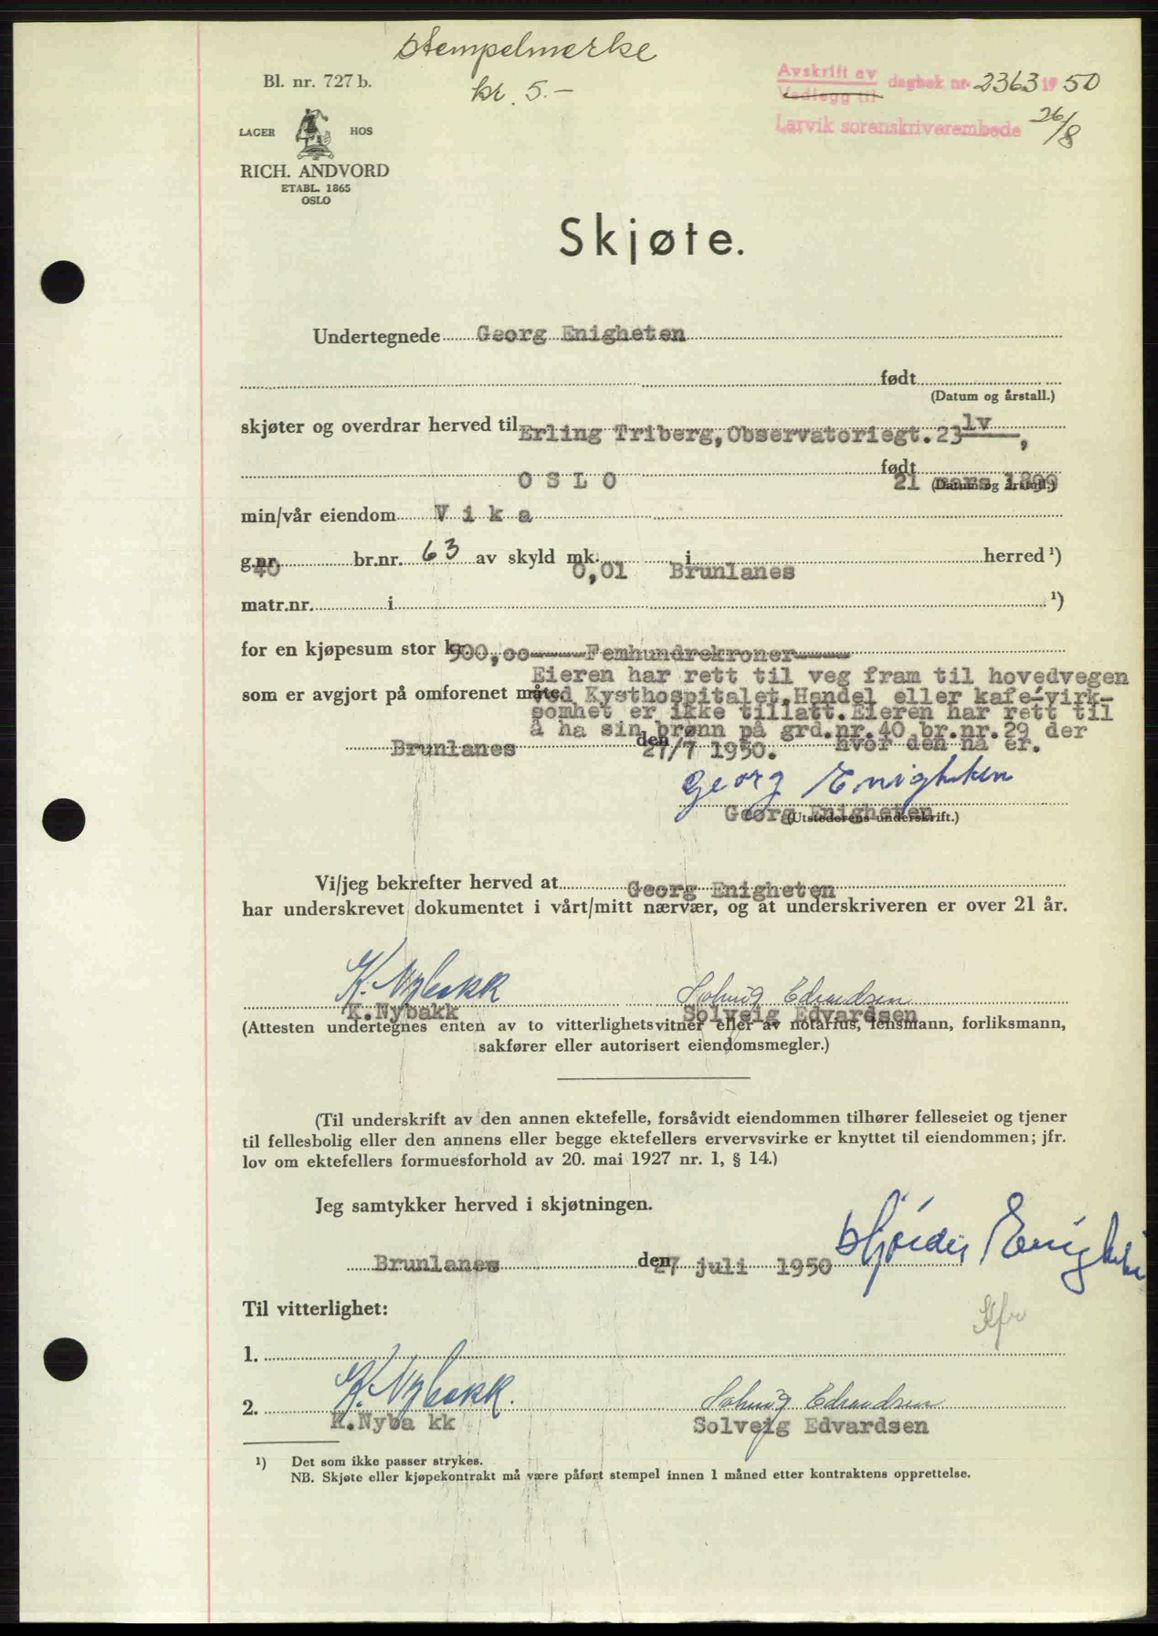 Stempelmerke
kr. 5.-
Bl. nr. 727 b.
Avskrift av dagbok nr. 2363 1950
Vedlegg til
Larvik sorenskriverembede 26/8
LAGER HOS
RICH. ANDVORD
ETABL. 1865
OSLO
Skjøte.
Undertegnede Georg Enigheten
født
(Datum og årstall.)
skjøter og overdrar herved til Erling Triberg, Observatoriegt. 23 lv,
OSLO født 21 mars 1899
(Datum og årstall.)
min/vår eiendom Vika
g.nr. 40 br.nr. 63 av skyld mk. 0,01 i Brunlanes herred ¹)
matr.nr. i ¹)
for en kjøpesum stor kr. 500,00 ---- Femhundrekroner ----
Eieren har rett til veg fram til hovedvegen
som er avgjort på omforenet måte. ved Kysthospitalet. Handel eller kafe-virk-
somhet er ikke tillatt. Eieren har rett til
å ha sin brønn på grd.nr. 40 br.nr. 29 der
Brunlanes den 27/7 1950. hvor den nå er.
Georg Enigheten
Georg Enigheten
(Utstederens underskrift.)
Vi/jeg bekrefter herved at Georg Enigheten
har underskrevet dokumentet i vårt/mitt nærvær, og at underskriveren er over 21 år.
K. Nybakk Solveig Edvardsen
K.Nybakk Solveig Edvardsen
(Attesten undertegnes enten av to vitterlighetsvitner eller av notarius, lensmann, forliksmann,
sakfører eller autorisert eiendomsmegler.)
(Til underskrift av den annen ektefelle, forsåvidt eiendommen tilhører felleseiet og tjener
til fellesbolig eller den annens eller begge ektefellers ervervsvirke er knyttet til eiendommen; jfr.
lov om ektefellers formuesforhold av 20. mai 1927 nr. 1, § 14.)
Jeg samtykker herved i skjøtningen.
Brunlanes den 27 juli 1950 Enigheten
Til vitterlighet:
1.
K. Nybakk. Solveig Edvardsen
2.
K.Nyba kk Solveig Edvardsen
¹) Det som ikke passer strykes.
NB. Skjøte eller kjøpekontrakt må være påført stempel innen 1 måned etter kontraktens opprettelse.